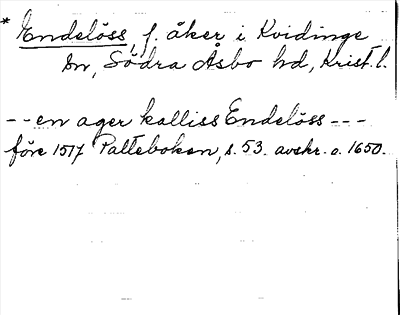 * Endelöss, f. åker i Kvidinge
sn, Södra Åsbo hd, Krist. l.
-- en ager kalliss Endelöss ---
före 1517 Palteboken, s. 53. avskr. o. 1650.